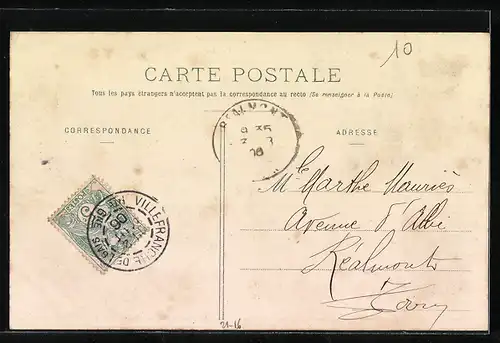 10
CARTE POSTALE
Tous les pays étrangers n'acceptent pas la correspondance au recto (Se renseigner à la Poste)
CORRESPONDANCE
ADRESSE
REALMONT
VILLEFRANCHE DE
Mlle Marthe Mauriès
Avenue d'Albi
Réalmont
Tarn
21-16